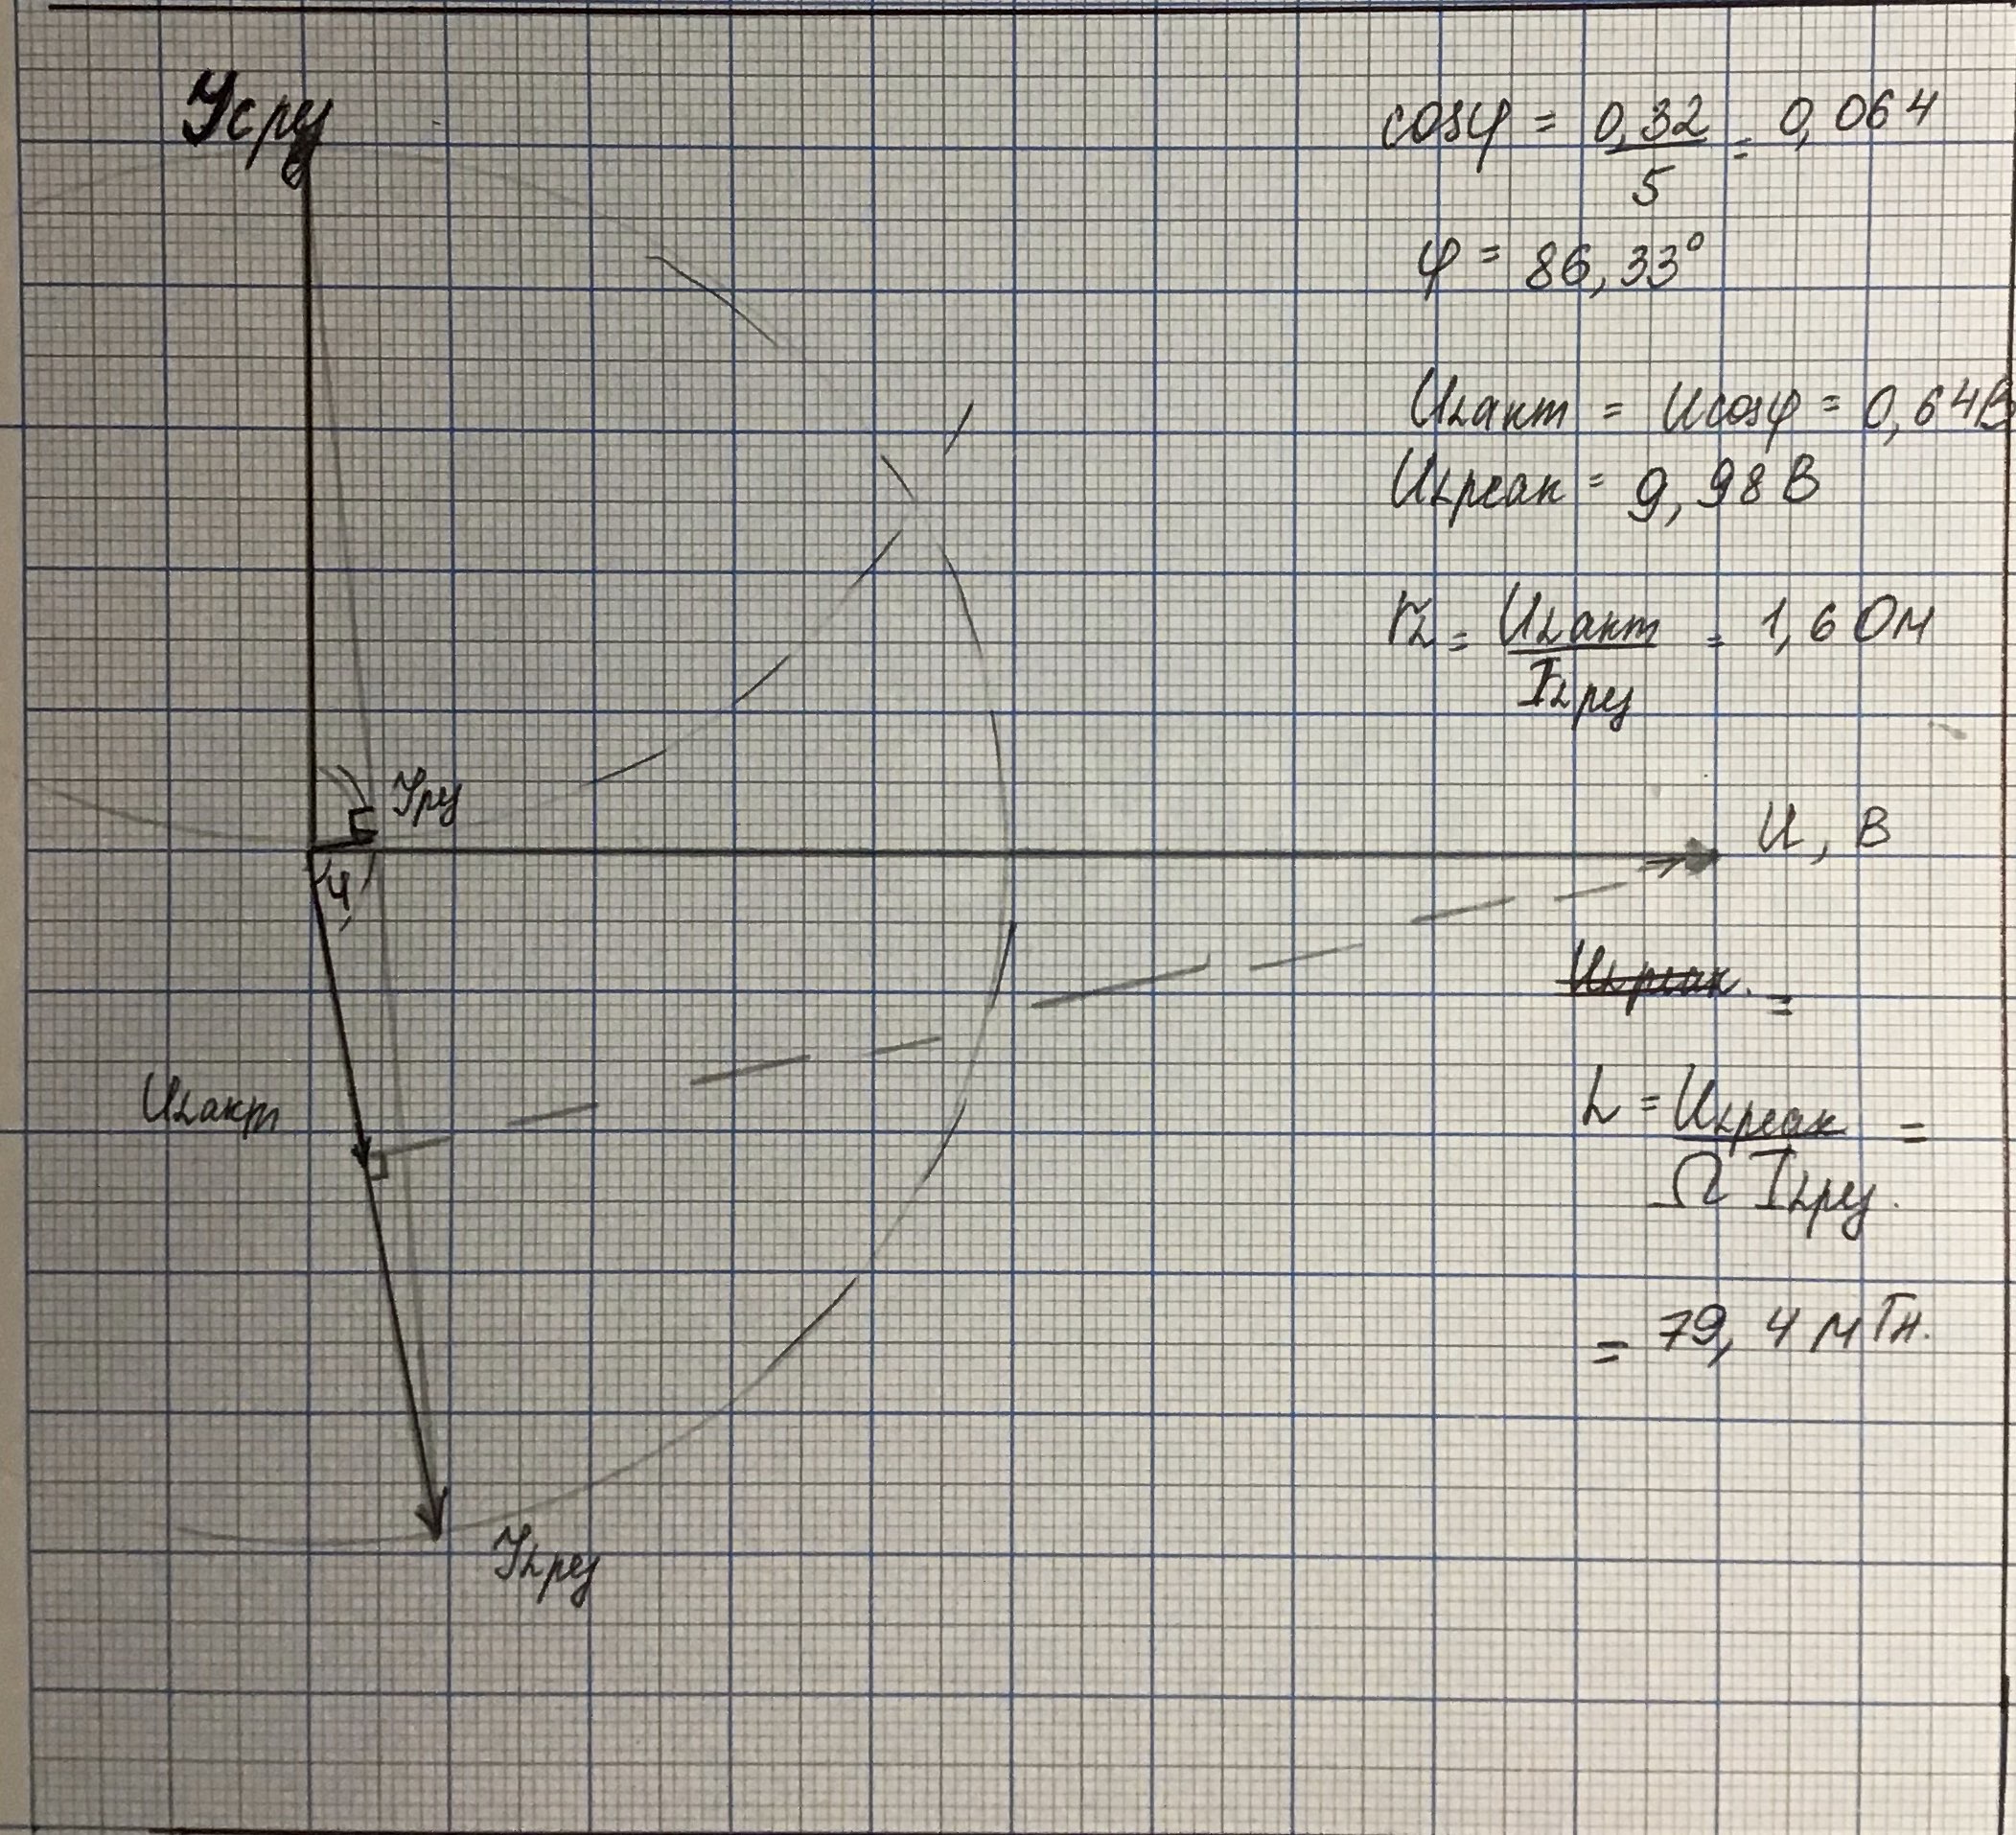 Iс рез
cosφ = 0,32/5 = 0,064
φ = 86,33°
ULакт = Ucosφ = 0,64В
ULреак = 9,98 В
rL = ULакт/ILрез = 1,6 Ом
Iрез
U, В
φ
ULреак. =
ULакт
L = ULреак/Ω ILрез. =
= 79,4 мГн.
ILрез